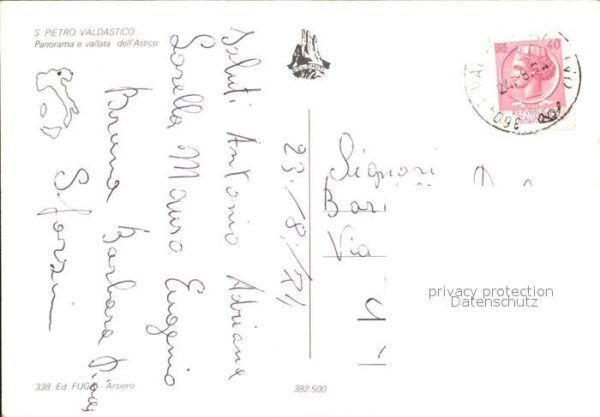 S PIETRO VALDASTICO
Panorama e vallata dell'Astico
Saluti Antonio Adriana
Lorella Mauro Eugenio
Bruna Barbara
Sforzin
23/8/74
LIRE 40
REPUBBLICA
ITALIANA
Signori
Bari
Via
privacy protection
Datenschutz
338 Ed. FUGA - Arsiero
382·500